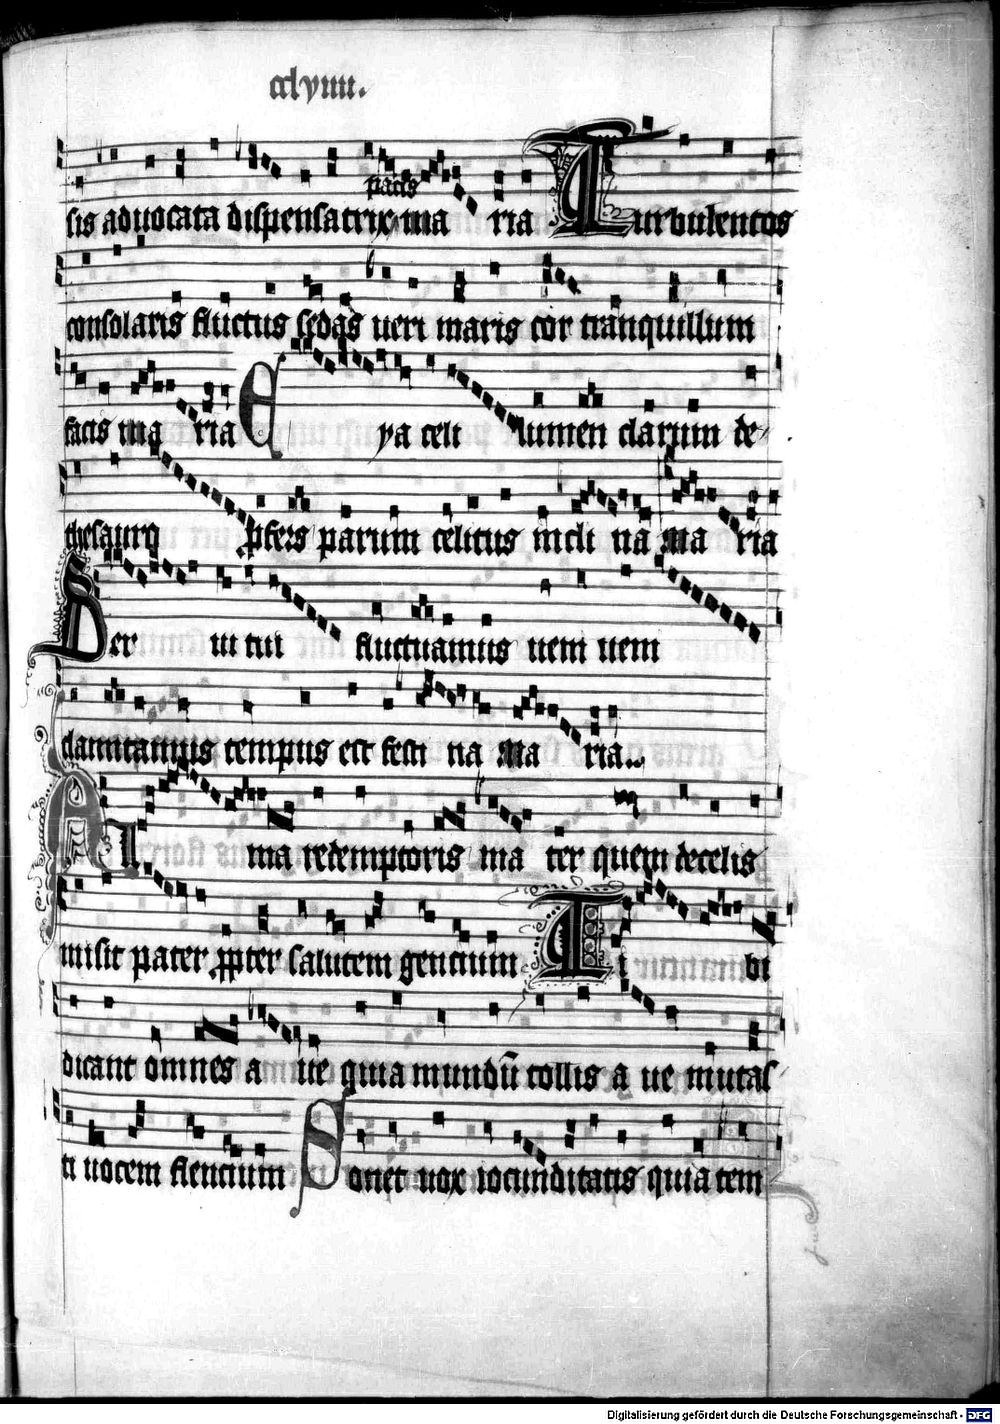 cclviiii.
pacis
sis aduocata dispensatrix ma ria Turbulentos
consolaris fluctus sedas ueri maris cor tranquillum
facis ma ria E ya celi lumen clarum de
thesauro pfers parum celitus incli na ma ria
Ser ui tui fluctuamus uem uem
clamitamus tempus est festi na ma ria.
Alma redemptoris ma ter quem decelis
misit pater ppter salutem gencium Ti bi
dicant omnes a ue quia mundū tollis a ue mutas
ti uocem flencium Sonet uox iocunditatis quia tem
Digitalisierung gefördert durch die Deutsche Forschungsgemeinschaft - DFG